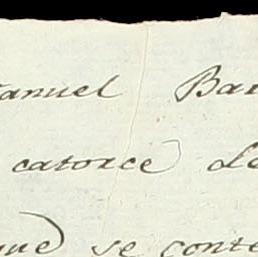 anuel Bar
catorce de
que se conte